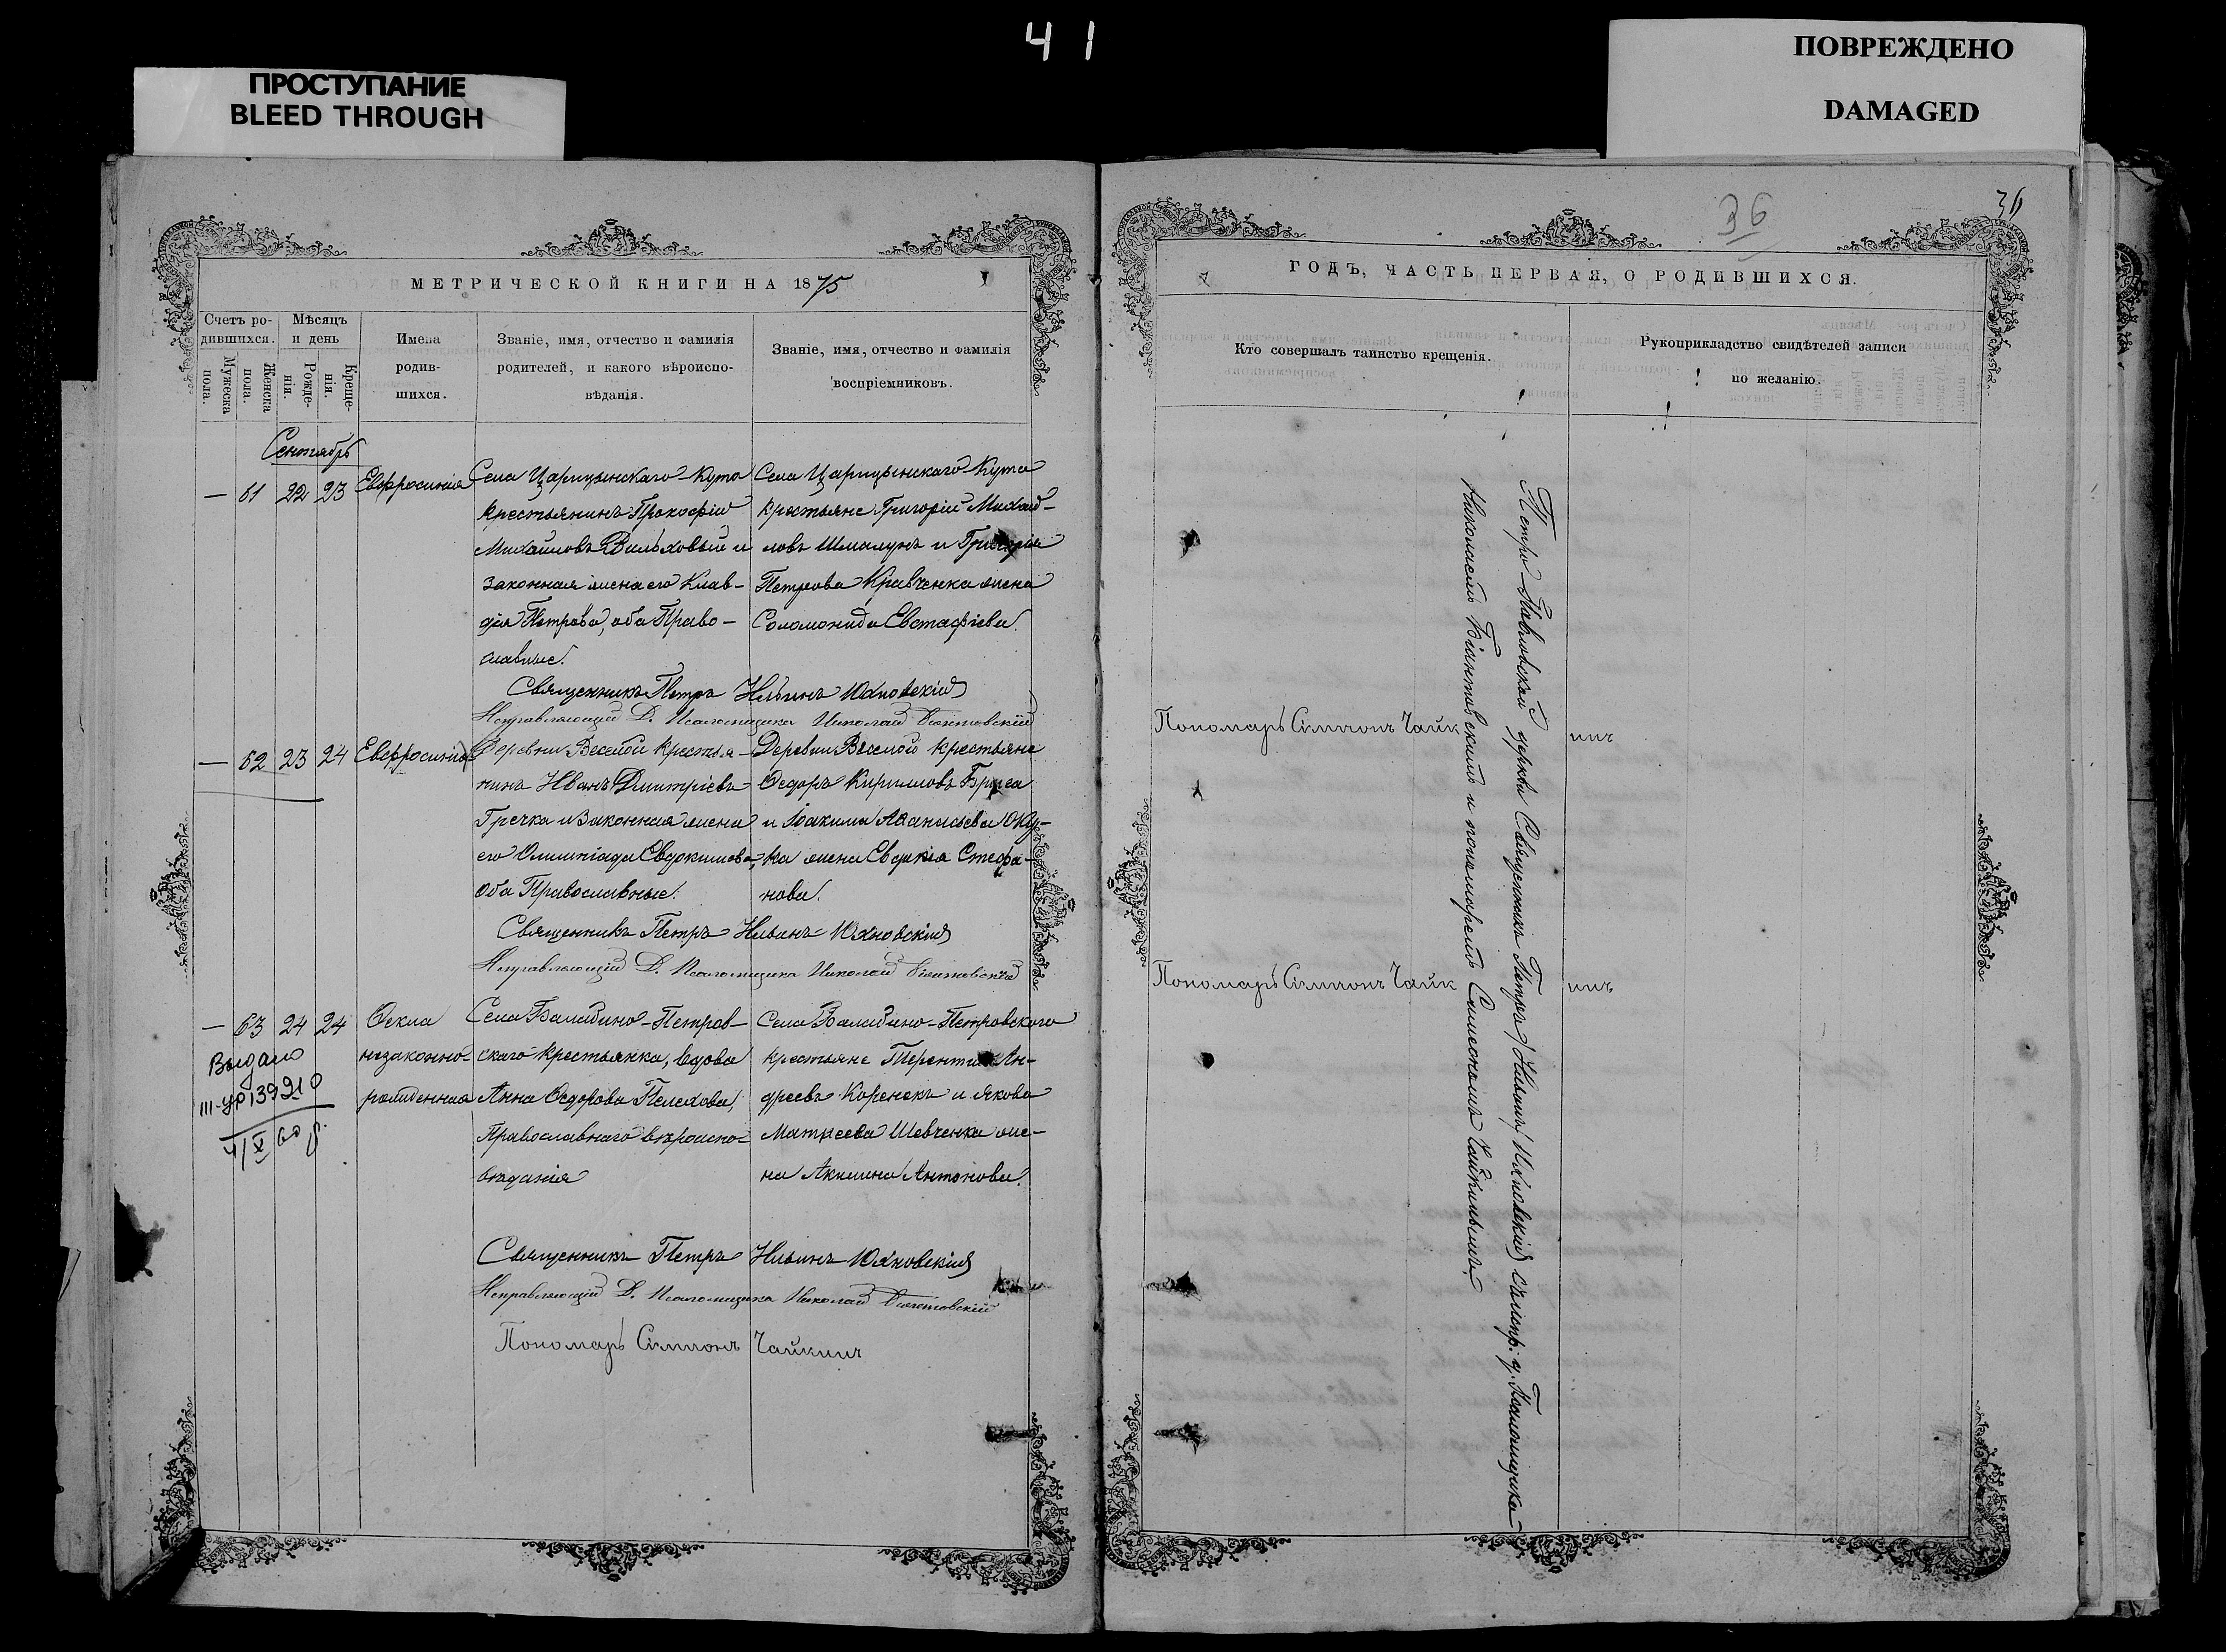 41
ПРОСТУПАНИЕ
BLEED THROUGH
ПОВРЕЖДЕНО
DAMAGED
МЕТРИЧЕСКОЙ КНИГИ НА 1875
Счетъ ро-
дившихся.
Мужеска
пола.
Женска
пола.
Мѣсяцъ
и день
Рожде-
нія.
Креще-
нія.
Имена
родив-
шихся.
Званіе, имя, отчество и фамилія
родителей, и какого вѣроиспо-
вѣданія.
Званіе, имя, отчество и фамилія
воспріемниковъ.
Сентябрь
— 61 22 23 Евфросинія
Села Царицынскаго-Кута
крестьянинъ Прокофій
Михайловъ Вильховый и
законная жена его Клав-
дія Петрова, оба Право-
славные.
Села Царицынскаго Кута
крестьяне Григорій Михай-
ловъ Шмалунъ и Григорія
Петрова Кравченка жена
Соломонида Евстафіева.
Священникъ Петръ Ильинъ Юхновскій
Исправляющій Д. Псаломщика Николай
— 62 23 24 Евфросинія
Деревни Веселой крестья-
нинъ Иванъ Дмитріевъ
Гречка и Законная жена
его Олимпіада Евдокимова,
Оба Православные.
Деревни Веселой крестьяне
Ѳедоръ Кирилловъ
и Іоакима Аѳанасьева
ка жена Евдокія Стефа-
нова.
Священникъ Петръ Ильинъ Юхновскій
Исправляющій Д. Псаломщика Николай
— 63 24 24 Ѳекла
незаконно-
рожденная
Выдано
III-УР 139210
4/X 60 г.
Села Балабино-Петров-
скаго крестьянка, вдова
Анна Ѳедорова Пелехова,
Православнаго вѣроиспо-
вѣданія
Села Балабино-Петровскаго
крестьяне Терентій Ан-
дреевъ Коренекъ и Якова
Матвеева Шевченка же-
на Акилина Антонова.
Священникъ Петръ Ильинъ Юхновскій
Исправляющій Д. Псаломщика Николай
Пономарь Симеонъ Чайкинъ
36
36
ГОДЪ, ЧАСТЬ ПЕРВАЯ, О РОДИВШИХСЯ.
Кто совершалъ таинство крещенія.
Рукоприкладство свидѣтелей записи
по желанію.
Петро-Павловской церкви Священникъ Петръ Ильинъ Юхновскій съ испр. д. Псаломщика
Николаемъ и пономаремъ Симеономъ Чайкинымъ
Пономарь Симеонъ Чайкинъ
Пономарь Симеонъ Чайкинъ